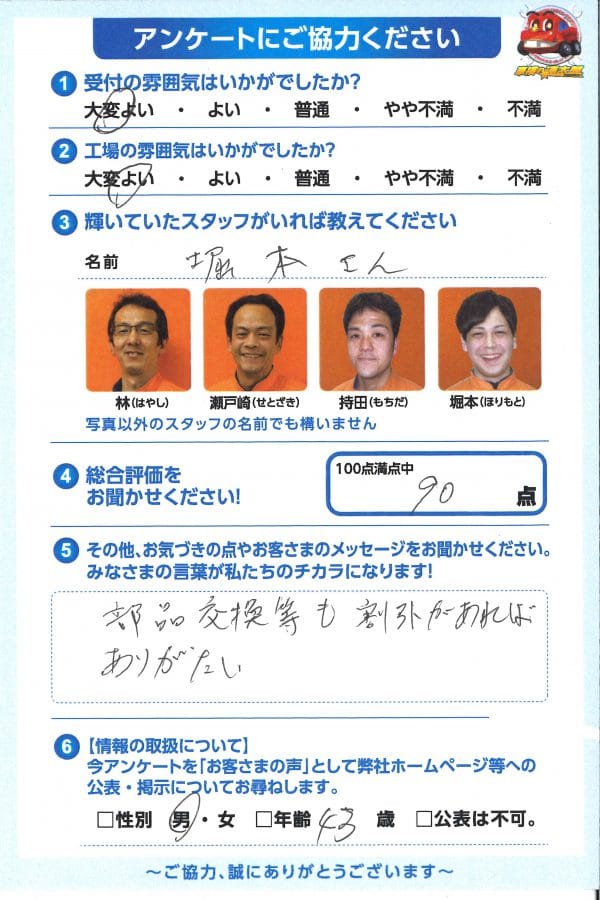 アンケートにご協力ください
1 受付の雰囲気はいかがでしたか?
大変よい ・ よい ・ 普通 ・ やや不満 ・ 不満
2 工場の雰囲気はいかがでしたか?
大変よい ・ よい ・ 普通 ・ やや不満 ・ 不満
3 輝いていたスタッフがいれば教えてください
名前 堀本さん
林(はやし) 瀬戸崎(せとざき) 持田(もちだ) 堀本(ほりもと)
写真以外のスタッフの名前でも構いません
4 総合評価を
お聞かせください!
100点満点中
90 点
5 その他、お気づきの点やお客さまのメッセージをお聞かせください。
みなさまの言葉が私たちのチカラになります!
部品交換等も割引があれば
ありがたい
6 【情報の取扱について】
今アンケートを「お客さまの声」として弊社ホームページ等への
公表・掲示についてお尋ねします。
□性別 男・女 □年齢 43 歳 □公表は不可。
〜ご協力、誠にありがとうございます〜